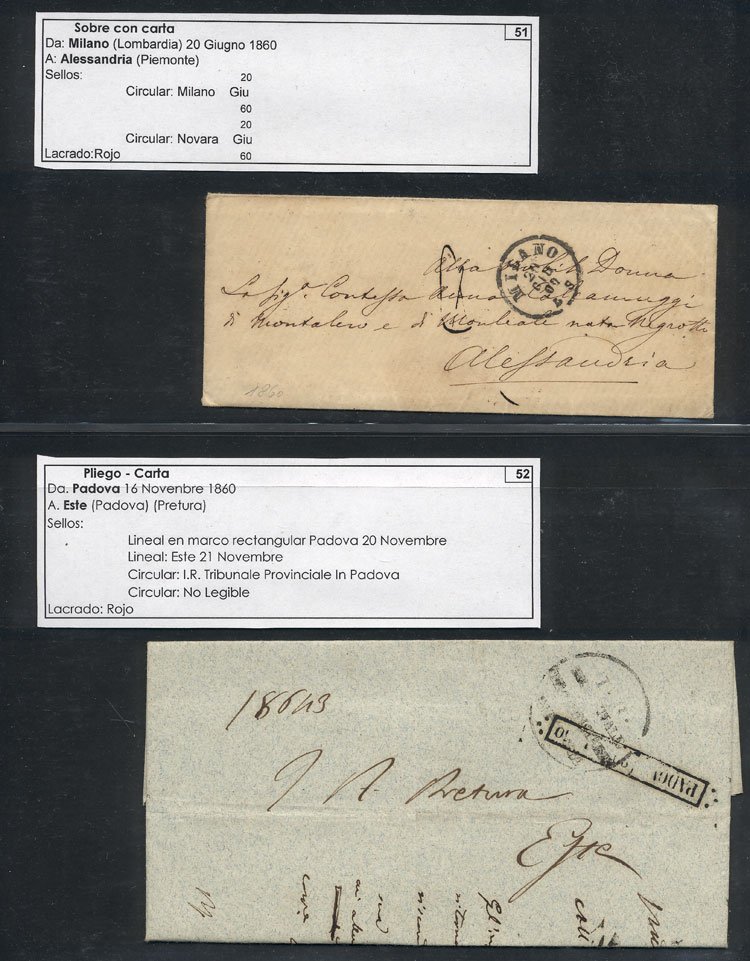 Sobre con carta
51
Da: Milano (Lombardia) 20 Giugno 1860
A: Alessandria (Piemonte)
Sellos:
20
Circular: Milano Giu
60
20
Circular: Novara Giu
Lacrado:Rojo 60
MILANO
Alla Nobil Donna
La Sig.ª Contessa
di Montalero e di Monleale nata Negrotti
Alessandria
1860
Pliego - Carta
52
Da. Padova 16 Novenbre 1860
A. Este (Padova) (Pretura)
Sellos:
Lineal en marco rectangular Padova 20 Novembre
Lineal: Este 21 Novembre
Circular: I.R. Tribunale Provinciale In Padova
Circular: No Legible
Lacrado: Rojo
PADOVA
I. R. Pretura
Este